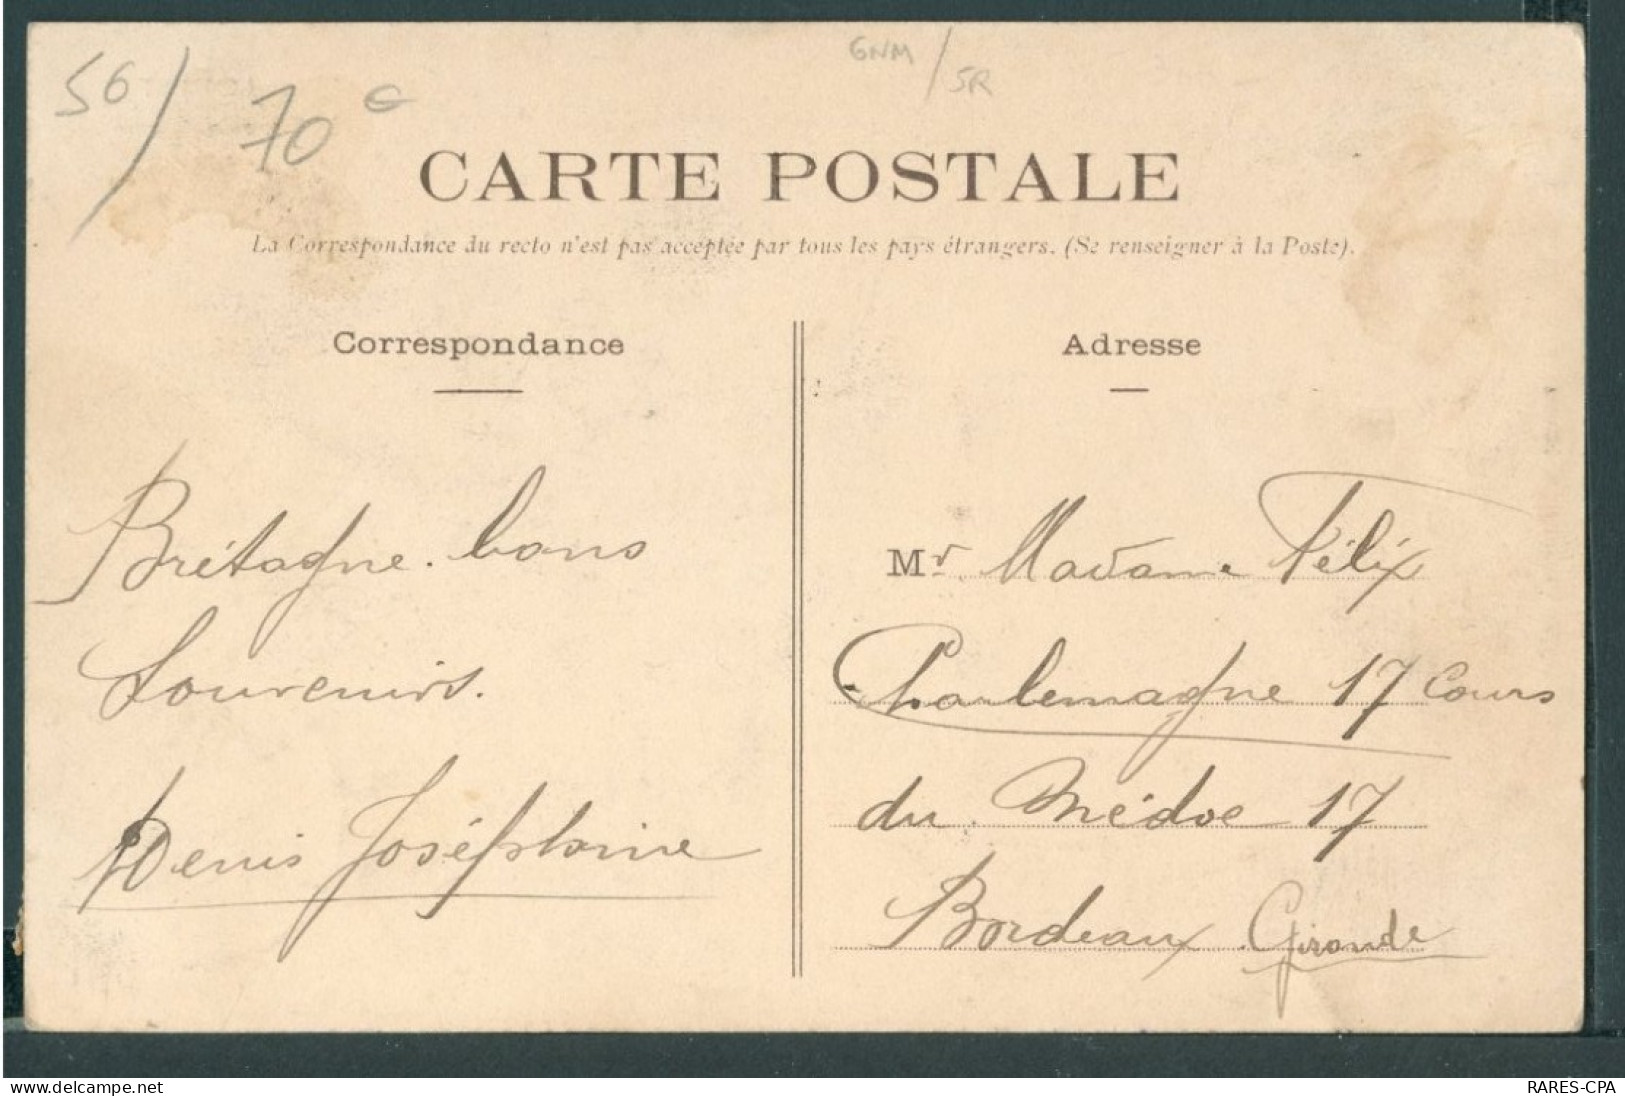 56/
70€
6NM/5R
CARTE POSTALE
La Correspondance du recto n'est pas acceptée par tous les pays étrangers. (Se renseigner à la Poste).
Correspondance
Bretagne. bons
Souvenirs.
Denis Joséphine
Adresse
Mr. Madame Félix
Charlemagne 17 Cours
du Médoc 17
Bordeaux Gironde
www.delcampe.net
RARES-CPA